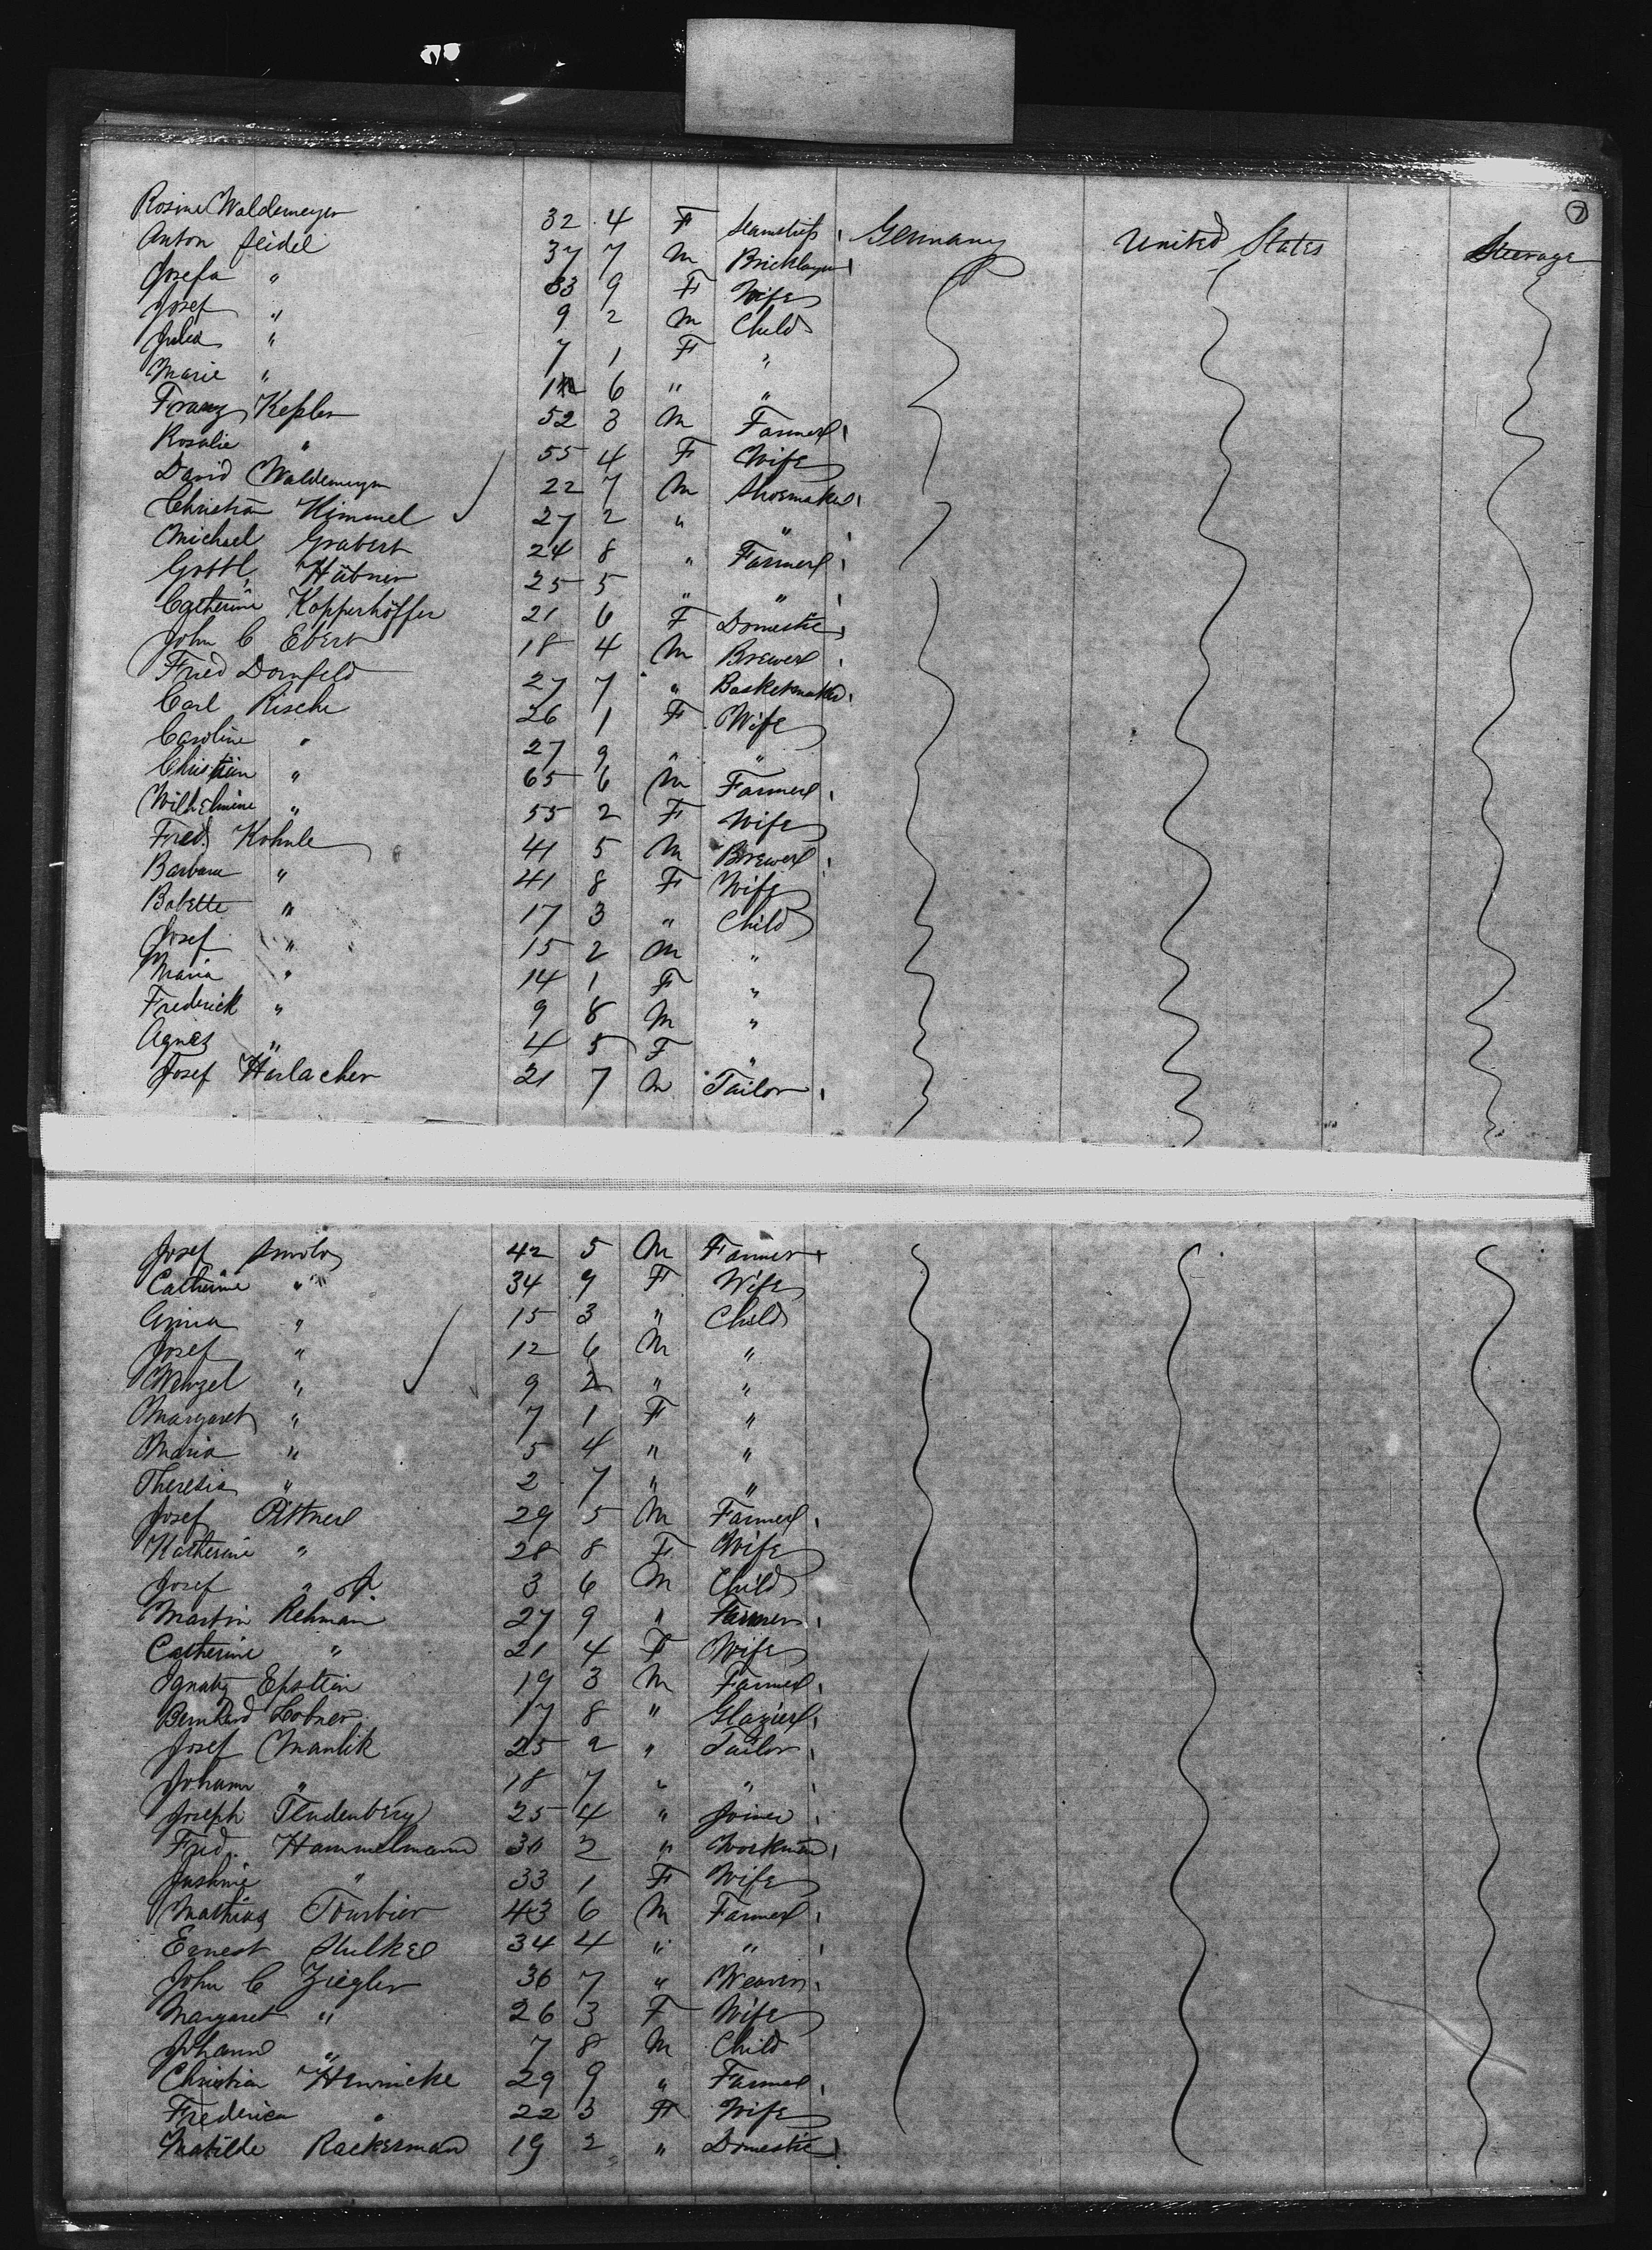 7
Rosine Waldemeyer 32 4 F Seamstress Germany United States Steerage
Anton Seidel 37 7 M Bricklayer
Josefa " 33 9 F Wife
Josef " 9 2 M Child
Julia " 7 1 F "
Marie " 6 " "
Franz Kepler 52 3 M Farmer
Rosalie " 55 4 F Wife
David Waldemeyer 22 7 M Shoemaker
Christian Himmel 27 2 " "
Michael Grabert 24 8 " Farmer
Gottl. Hübner 25 5 " "
Catherine Kopperhöffer 21 6 F Domestic
John C Ebert 18 4 M Brewer
Fried Dornfeld 27 7 " Basketmaker
Carl Rische 26 1 F Wife
Caroline " 27 9 " "
Christian " 65 6 M Farmer
Wilhelmine " 55 2 F Wife
Fred. Kohnle 41 5 M Brewer
Barbara " 41 8 F Wife
Babette " 17 3 " Child
Josef " 15 2 M "
Maria " 14 1 F "
Frederick " 9 8 M "
Agnes " 4 5 F "
Josef Harlacher 21 7 M Tailor
Josef 42 5 M Farmer
Catherine " 34 9 F Wife
Anna " 15 3 " Child
Josef " 12 6 M "
Wenzel " 9 2 " "
Margaret " 7 1 F "
Maria " 5 4 " "
Theresia " 2 7 " "
Josef Pittner 29 5 M Farmer
Katherine " 28 8 F Wife
Josef " 3 6 M Child
Martin Rehman 27 9 " Farmer
Catherine " 21 4 F Wife
Ignatz Epstein 19 3 M Farmer
Bernhard Lobner 17 8 " Glazier
Josef Manlik 25 2 " Tailor
Johann " 18 7 " "
Joseph 25 4 " Joiner
Fred. Hammelmann 30 2 " Workman
" 33 1 F Wife
Mathias Tourbier 43 6 M Farmer
Ernest Stulkel 34 4 " "
John C Ziegler 36 7 " Weaver
Margaret " 26 3 F Wife
Johann " 7 8 M Child
Christian Hennicke 29 9 " Farmer
Frederica " 22 3 F Wife
Matilde Rackerman 19 2 " Domestic